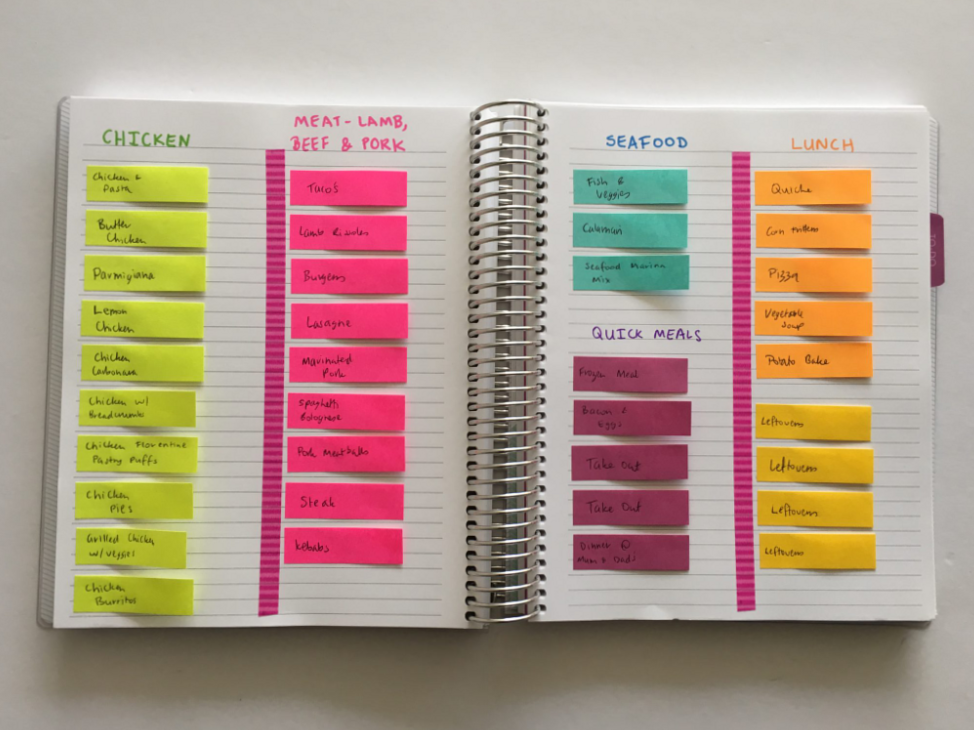 CHICKEN
Chicken &
Pasta
Butter
Chicken
Parmigiana
Lemon
Chicken
Chicken
Carbonara
Chicken w/
Breadcrumbs
Chicken Florentine
Pastry Puffs
Chicken
Pies
Grilled Chicken
w/veggies
Chicken
Burritos
MEAT - LAMB,
BEEF & PORK
Taco's
Lamb
Burgers
Lasagne
Marinated
Pork
Spaghetti
Bolognese
Pork Meatballs
Steak
Kebabs
SEAFOOD
Fish &
Veggies
Calamari
Seafood Marina
Mix
QUICK MEALS
Frozen Meal
Bacon &
Eggs
Take out
Take Out
Dinner @
Mum & Dad's
LUNCH
Quiche
Corn
Pizza
Vegetable
Soup
Potato Bake
Leftovers
Leftovers
Leftovers
Leftovers